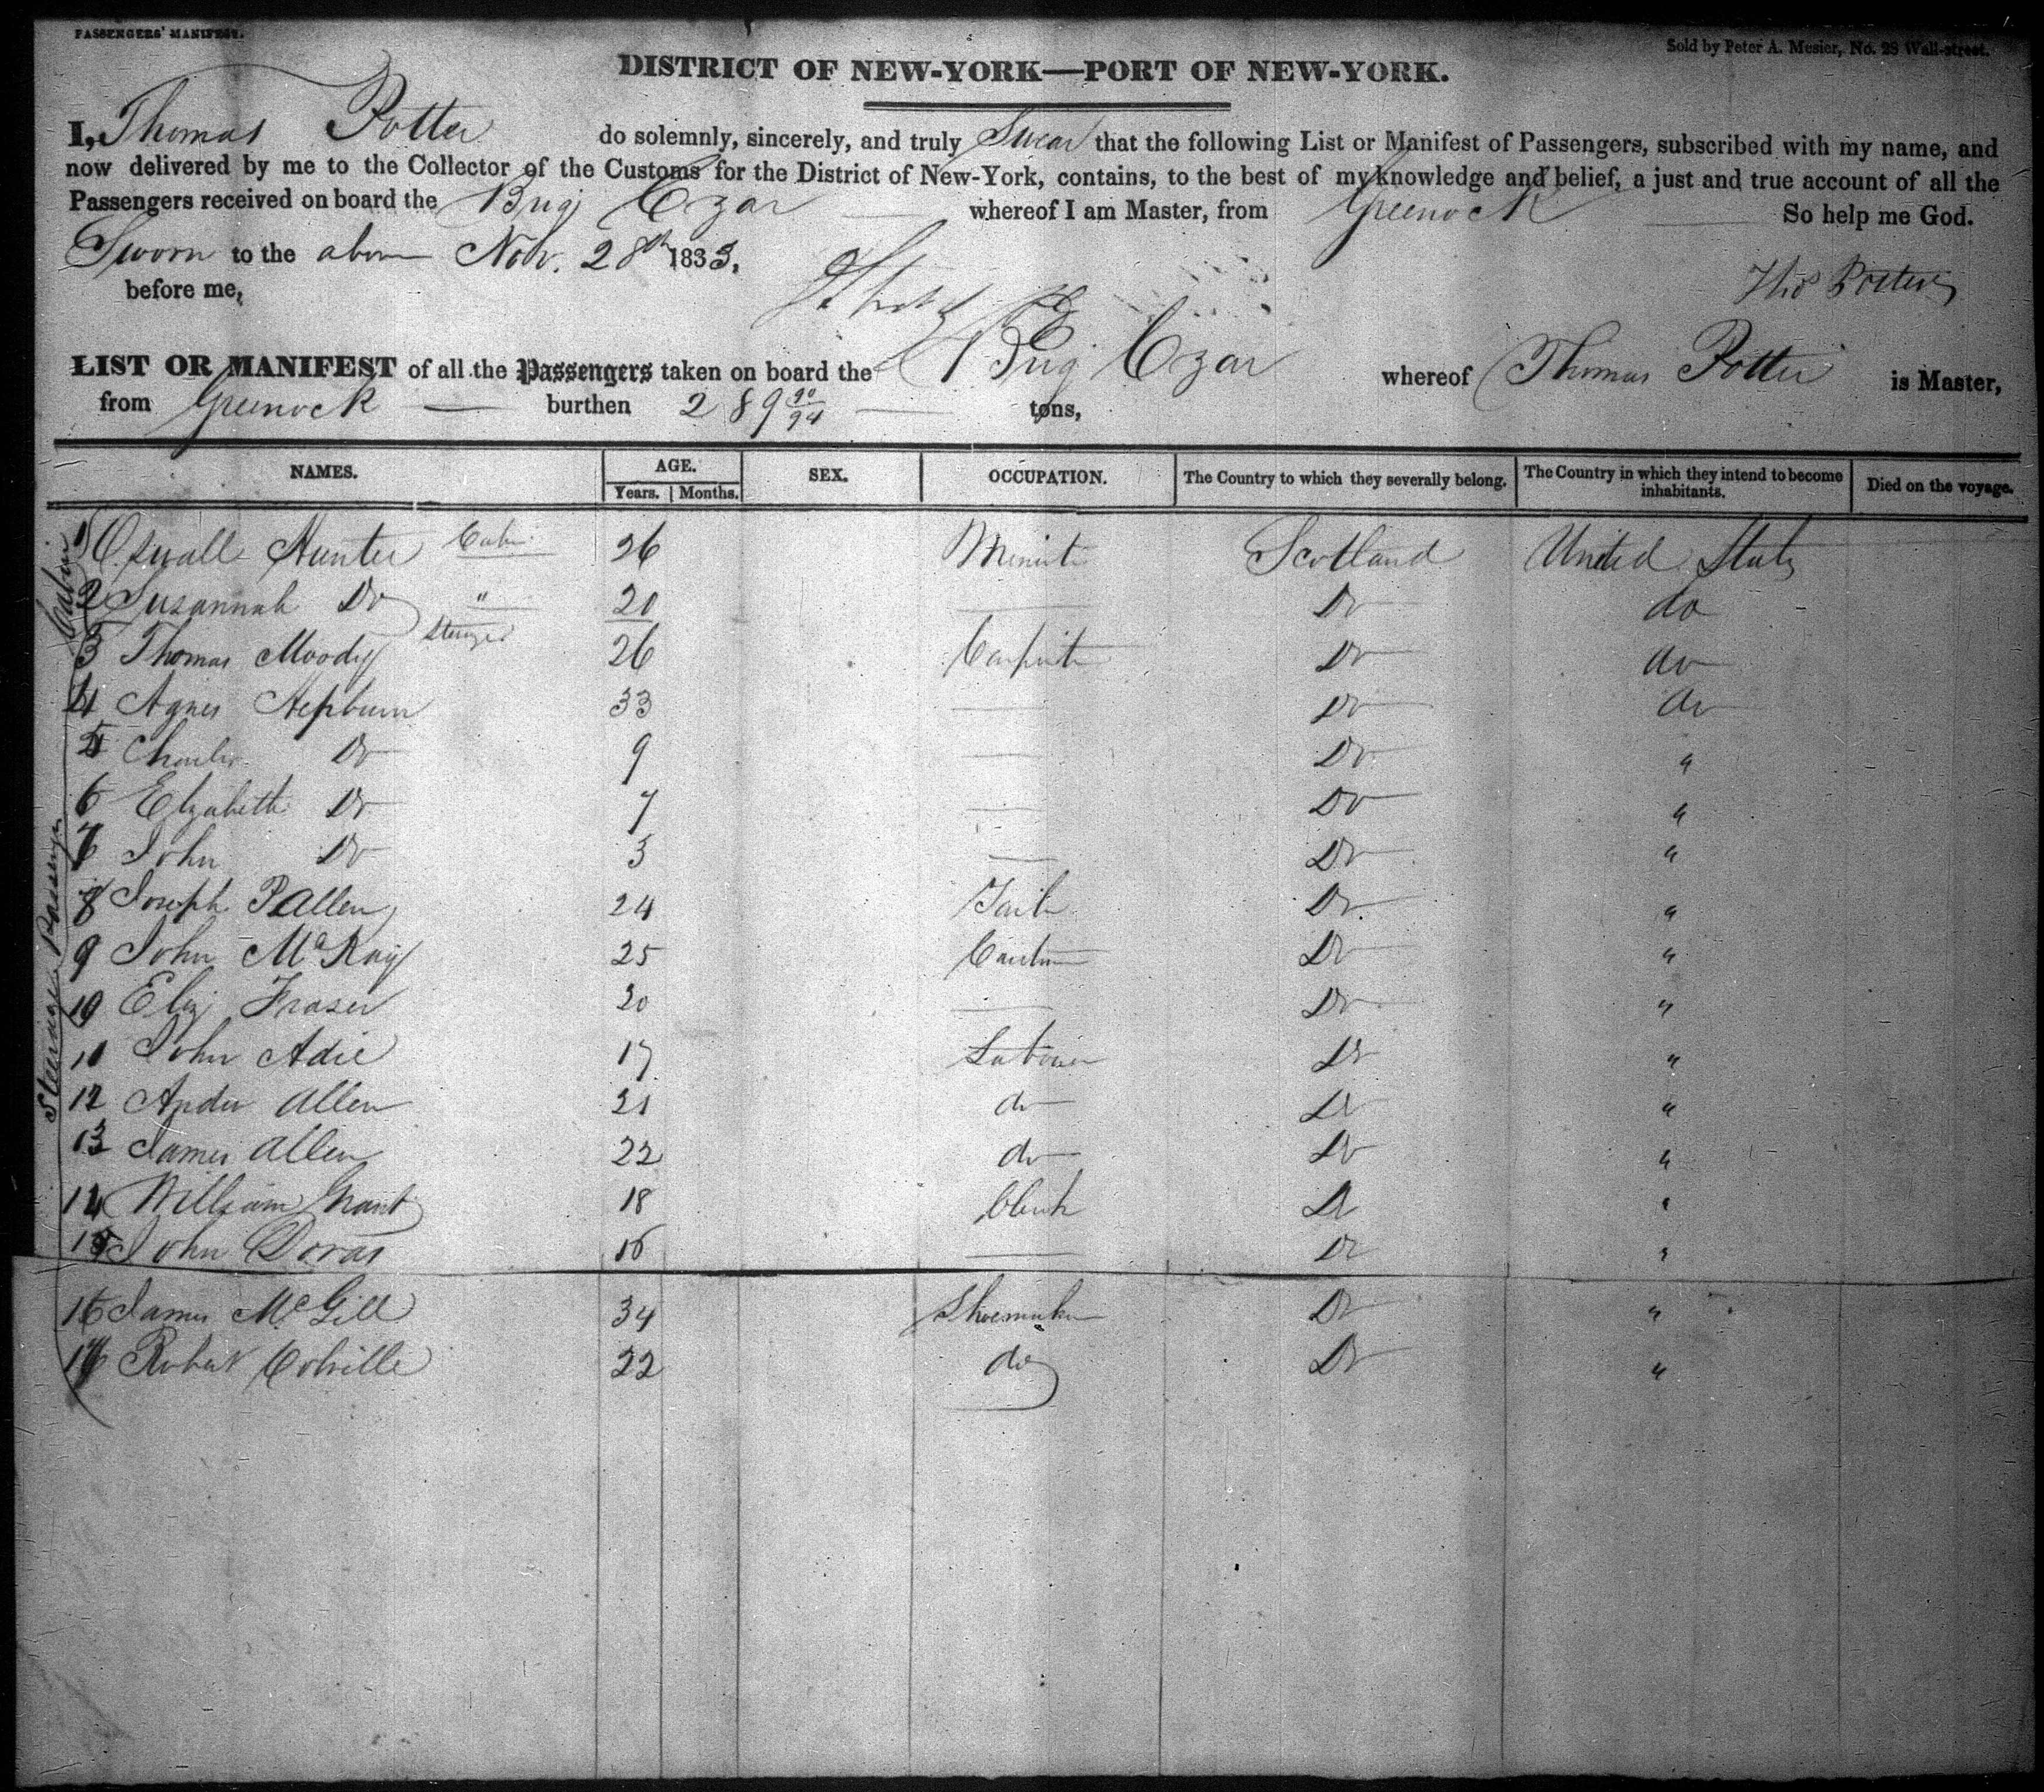 PASSENGERS' MANIFEST.
Sold by Peter A. Mesier, No. 28 Wall-street.
DISTRICT OF NEW-YORK—PORT OF NEW-YORK.
I, Thomas Potter do solemnly, sincerely, and truly Swear that the following List or Manifest of Passengers, subscribed with my name, and
now delivered by me to the Collector of the Customs for the District of New-York, contains, to the best of my knowledge and belief, a just and true account of all the
Passengers received on board the Brig Czar whereof I am Master, from Greenock So help me God.
Sworn to the above Nov. 28th 1833,
before me,
Thos Potter
LIST OR MANIFEST of all the Passengers taken on board the Brig Czar whereof Thomas Potter is Master,
from Greenock — burthen 289 90/94 — tons,
NAMES. AGE. SEX. OCCUPATION. The Country to which they severally belong. The Country in which they intend to become inhabitants. Died on the voyage.
Years. Months.
Cabin
1 Oswall Hunter Cabin 26 Minister Scotland United States
2 Susannah Do " 20 — Do do
Steerage
3 Thomas Moody 26 Carpenter Do do
4 Agnes Hepburn 33 — Do do
5 Charles Do 9 — Do "
6 Elizabeth Do 7 — Do "
7 John Do 3 — Do "
Steerage Passengers
8 Joseph P Allen 24 Tailor Do "
9 John McKay 25 Do "
10 Eliz Fraser 20 — Do "
11 John Adie 17 Labourer Do "
12 Andw Allen 21 do Do "
13 James Allen 22 do Do "
14 William Grant 18 Clerk Do "
15 John Doras 16 — Do "
16 James McGill 34 Shoemaker Do "
17 Robert Colville 22 do Do "